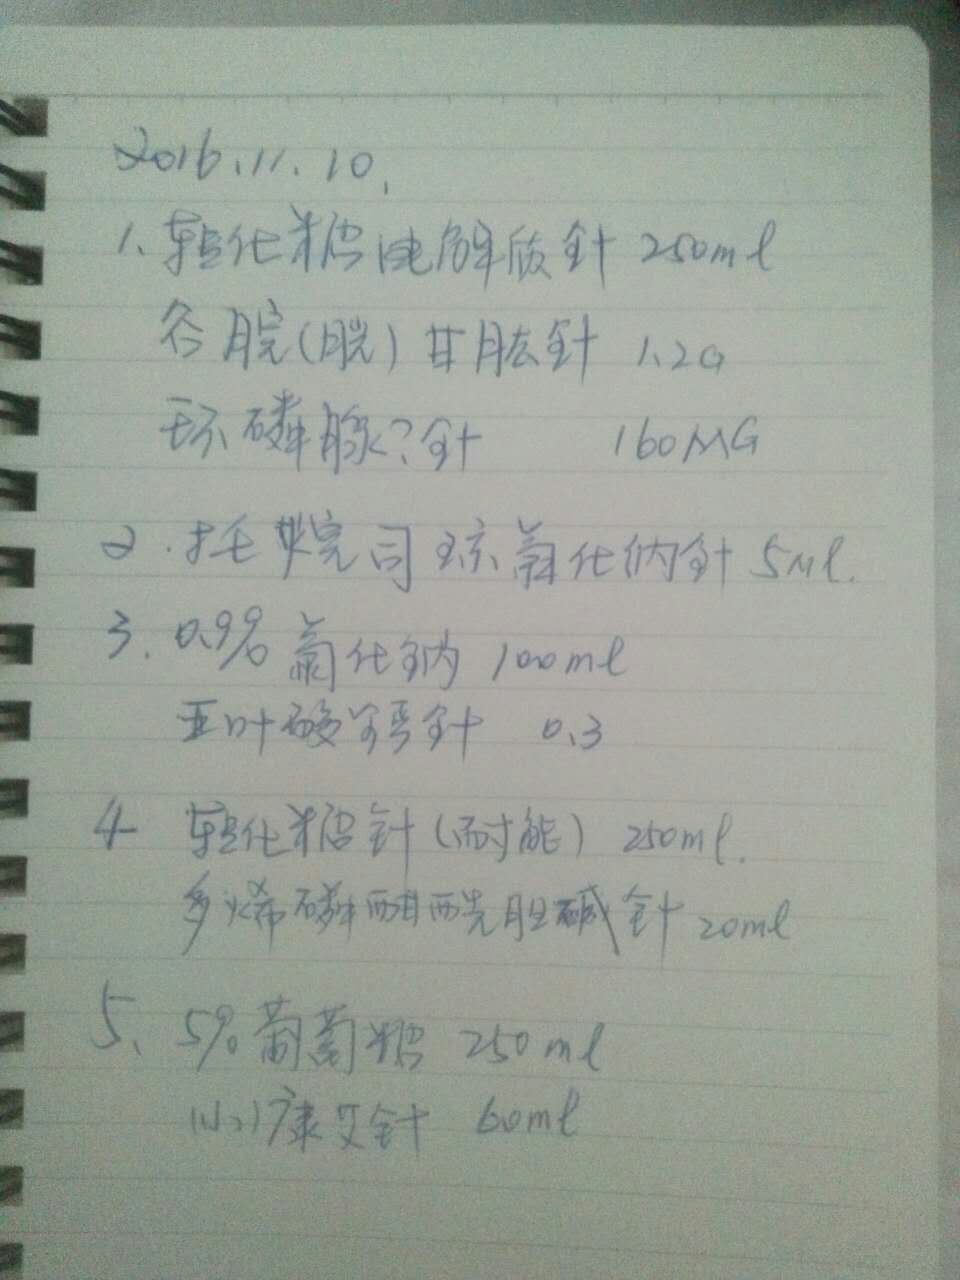 2016.11.10.
1、转化糖电解质针 250ml
谷胱(胱)甘肽针 1.2G
环磷腺?针 160MG
2.托烷司琼氯化钠针 5ml.
3.0.9%氯化钠 100ml
亚叶酸钙针 0.3
4 转化糖针(耐能) 250ml.
多烯磷酯酰胆碱针 20ml
5、5%葡萄糖 250ml
康艾针 60ml